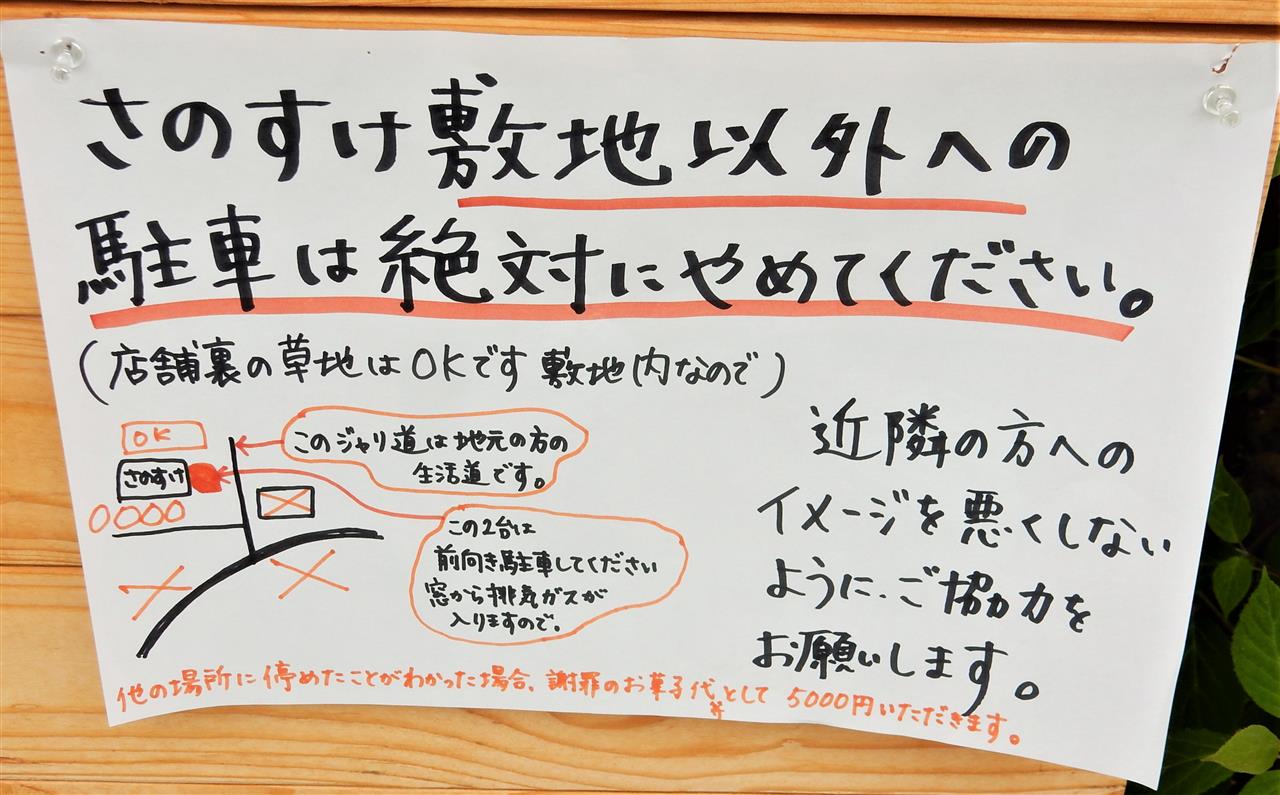 さのすけ敷地以外への
駐車は絶対にやめてください。
(店舗裏の草地はOKです 敷地内なので)
OK
さのすけ
このジャリ道は地元の方の
生活道です。
この2台は
前向き駐車してください
窓から排気ガスが
入りますので。
近隣の方への
イメージを悪くしない
ように、ご協力を
お願いします。
他の場所に停めたことがわかった場合、謝罪のお菓子代として 5000円いただきます。